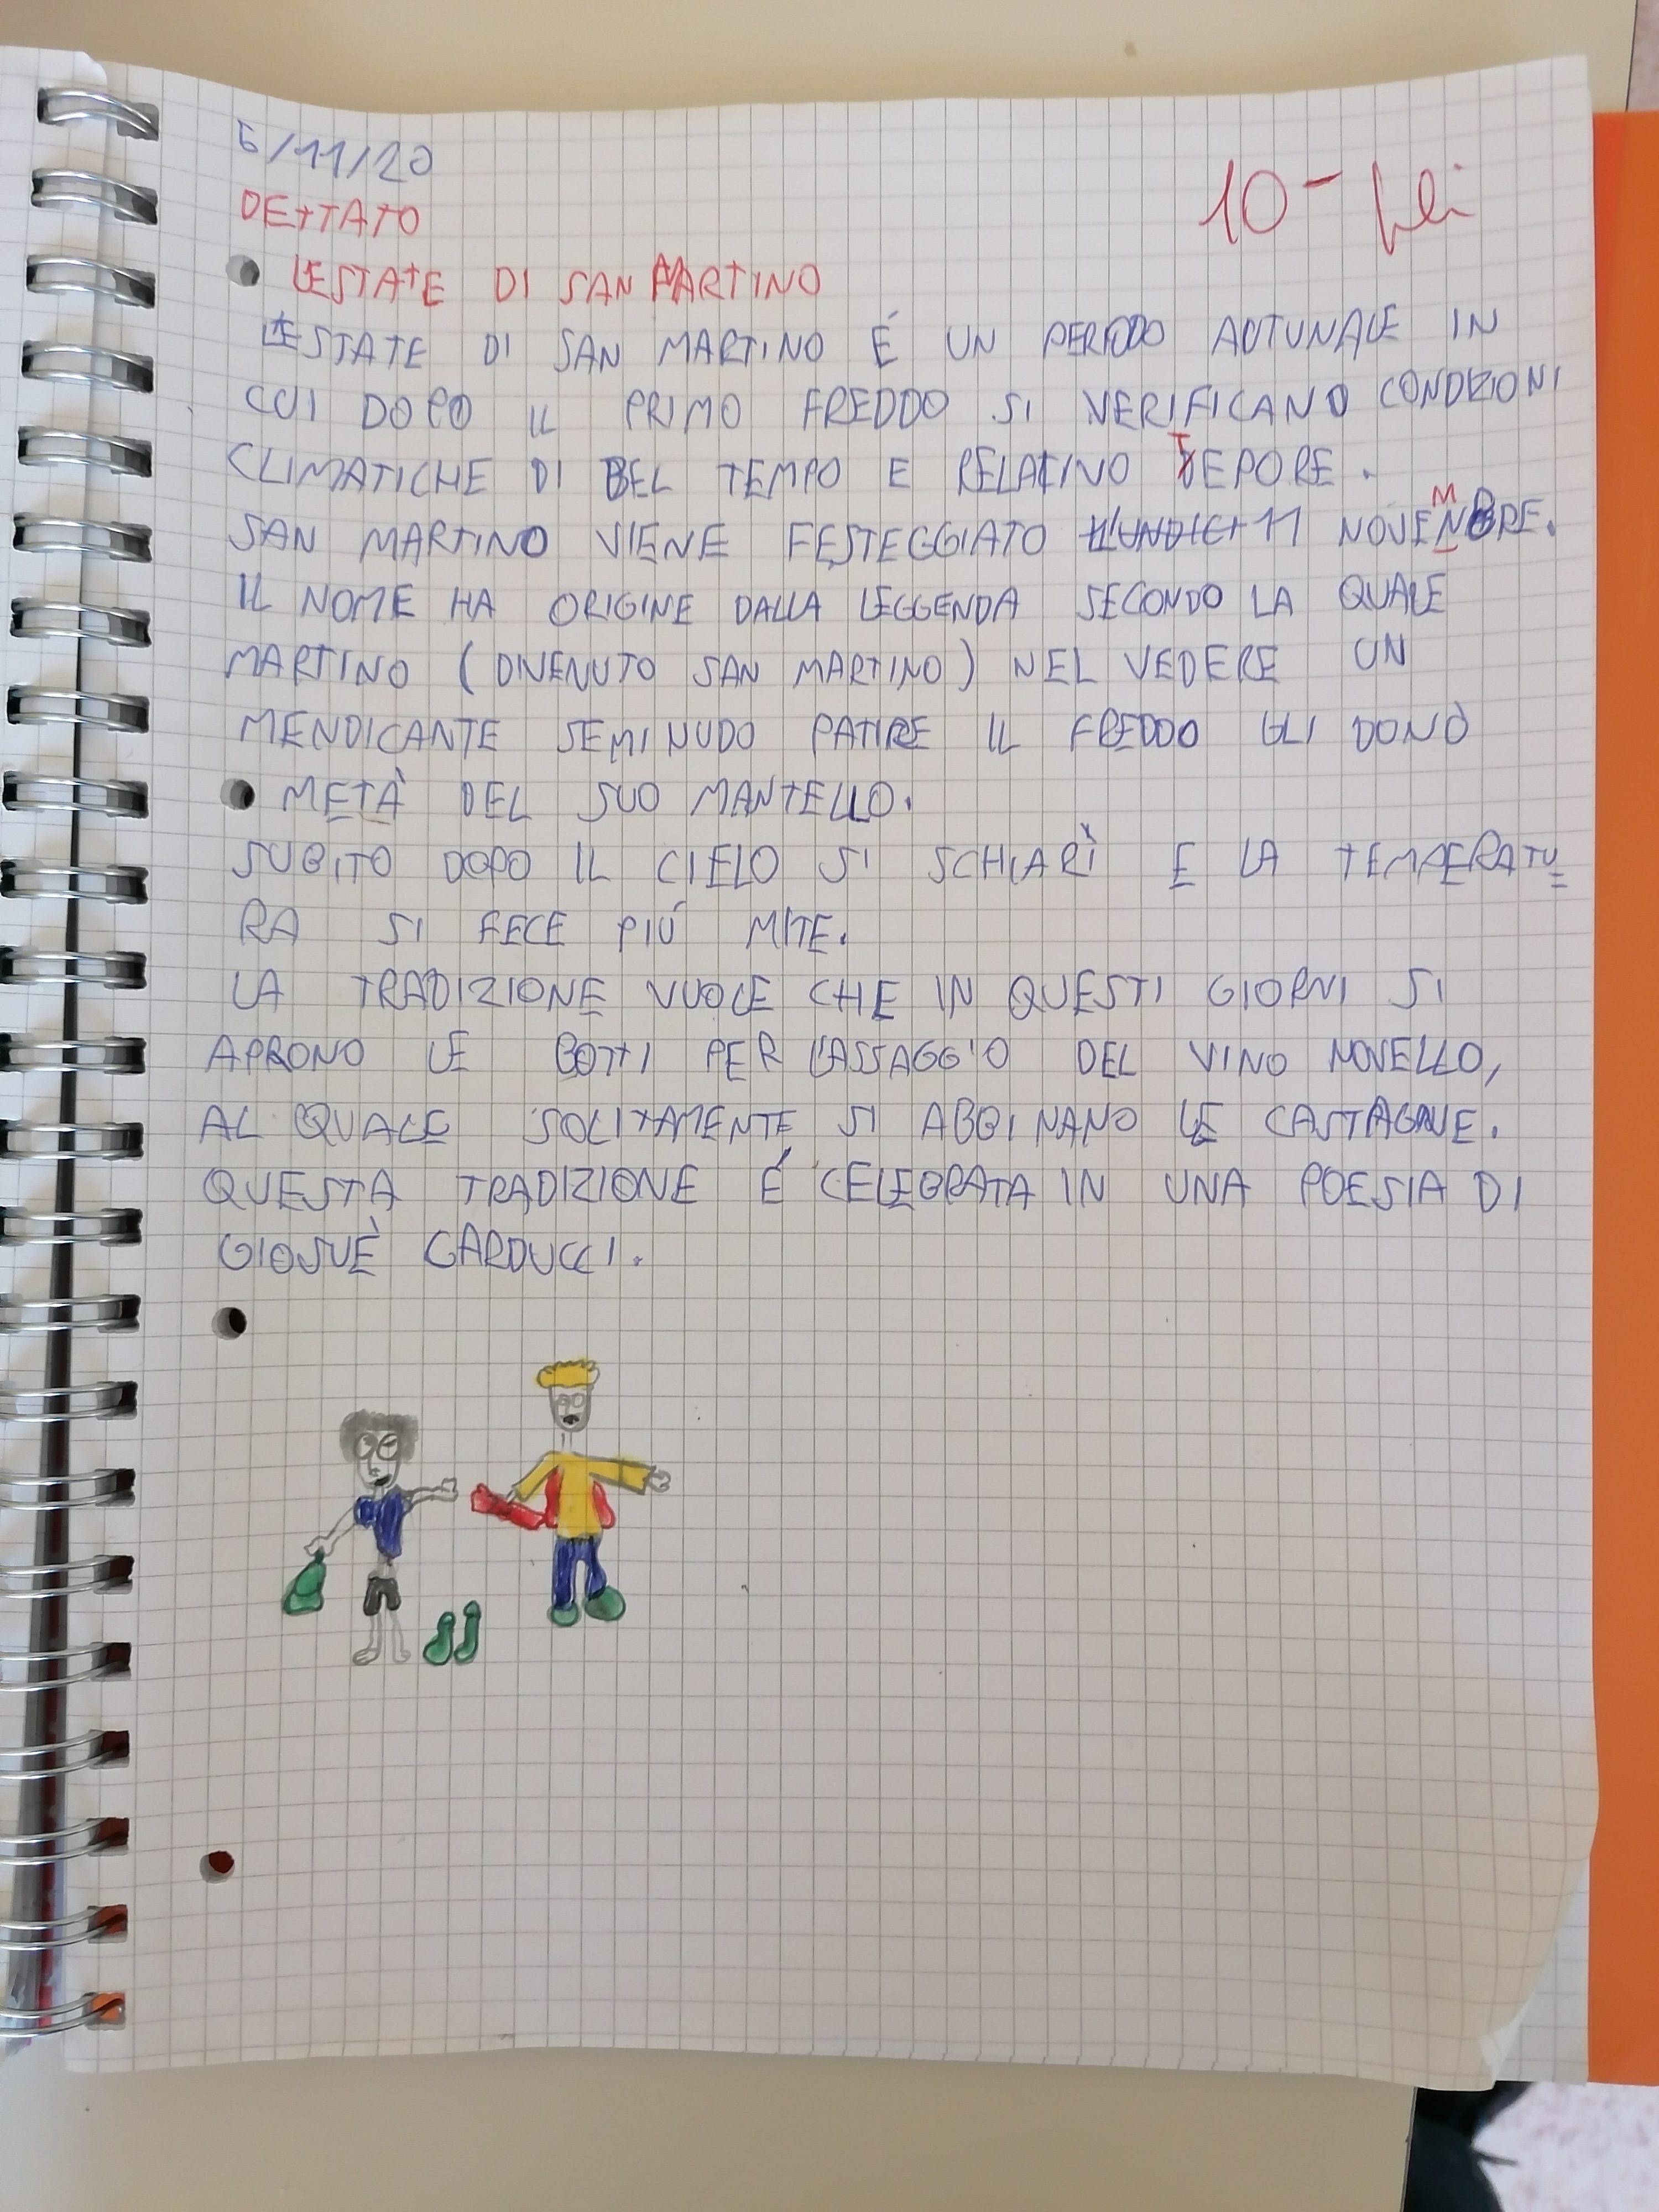 6/11/20
10-
DETTATO
L'ESTATE DI SAN MARTINO
L'ESTATE DI SAN MARTINO É UN PERIODO AUTUNALE IN
CUI DOPO IL PRIMO FREDDO SI VERIFICANO CONDIZIONI
CLIMATICHE DI BEL TEMPO E RELATIVO TEPORE.
SAN MARTINO VIENE FESTEGGIATO L'UNDICI 11 NOVEMBRE.
IL NOME HA ORIGINE DALLA LEGGENDA SECONDO LA QUALE
MARTINO (DIVENUTO SAN MARTINO) NEL VEDERE UN
MENDICANTE SEMINUDO PATIRE IL FREDDO GLI DONÒ
METÀ DEL SUO MANTELLO.
SUBITO DOPO IL CIELO SI SCHIARÌ E LA TEMPERATU
RA SI FECE PIÚ MITE.
LA TRADIZIONE VUOLE CHE IN QUESTI GIORNI SI
APRONO LE BOTTI PER L'ASSAGGIO DEL VINO NOVELLO,
AL QUALE SOLITAMENTE SI ABBINANO LE CASTAGNE.
QUESTA TRADIZIONE É CELEBRATA IN UNA POESIA DI
GIOSUÈ CARDUCCI.